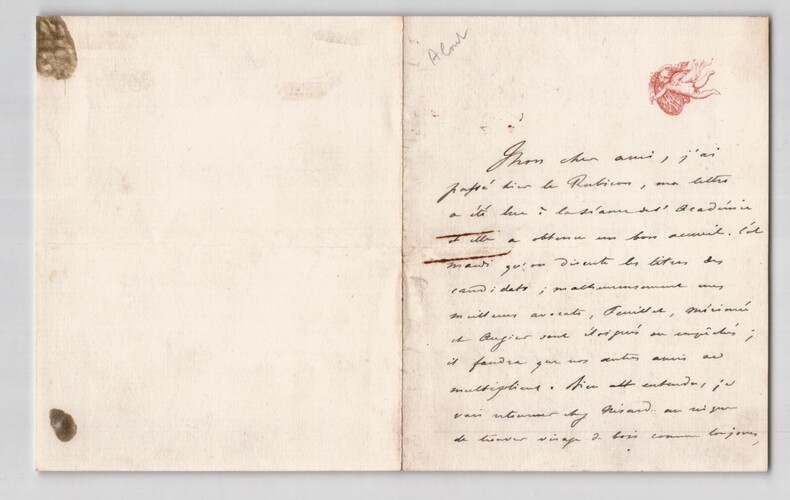 Mon cher ami, j'ai
passé hier le Rubicon, ma lettre
a été lue à la séance de l'Académie
et elle a obtenu un bon accueil. C'est
mardi qu'on discute les titres des
candidats ; malheureusement mes
meilleurs avocats, Feuillet, Mérimée
et Augier sont éloignés ou empêchés ;
il faudra que nos autres amis se
multiplient. Bien entendu, je
vais retourner chez Nisard au risque
de trouver visage de bois comme toujours,